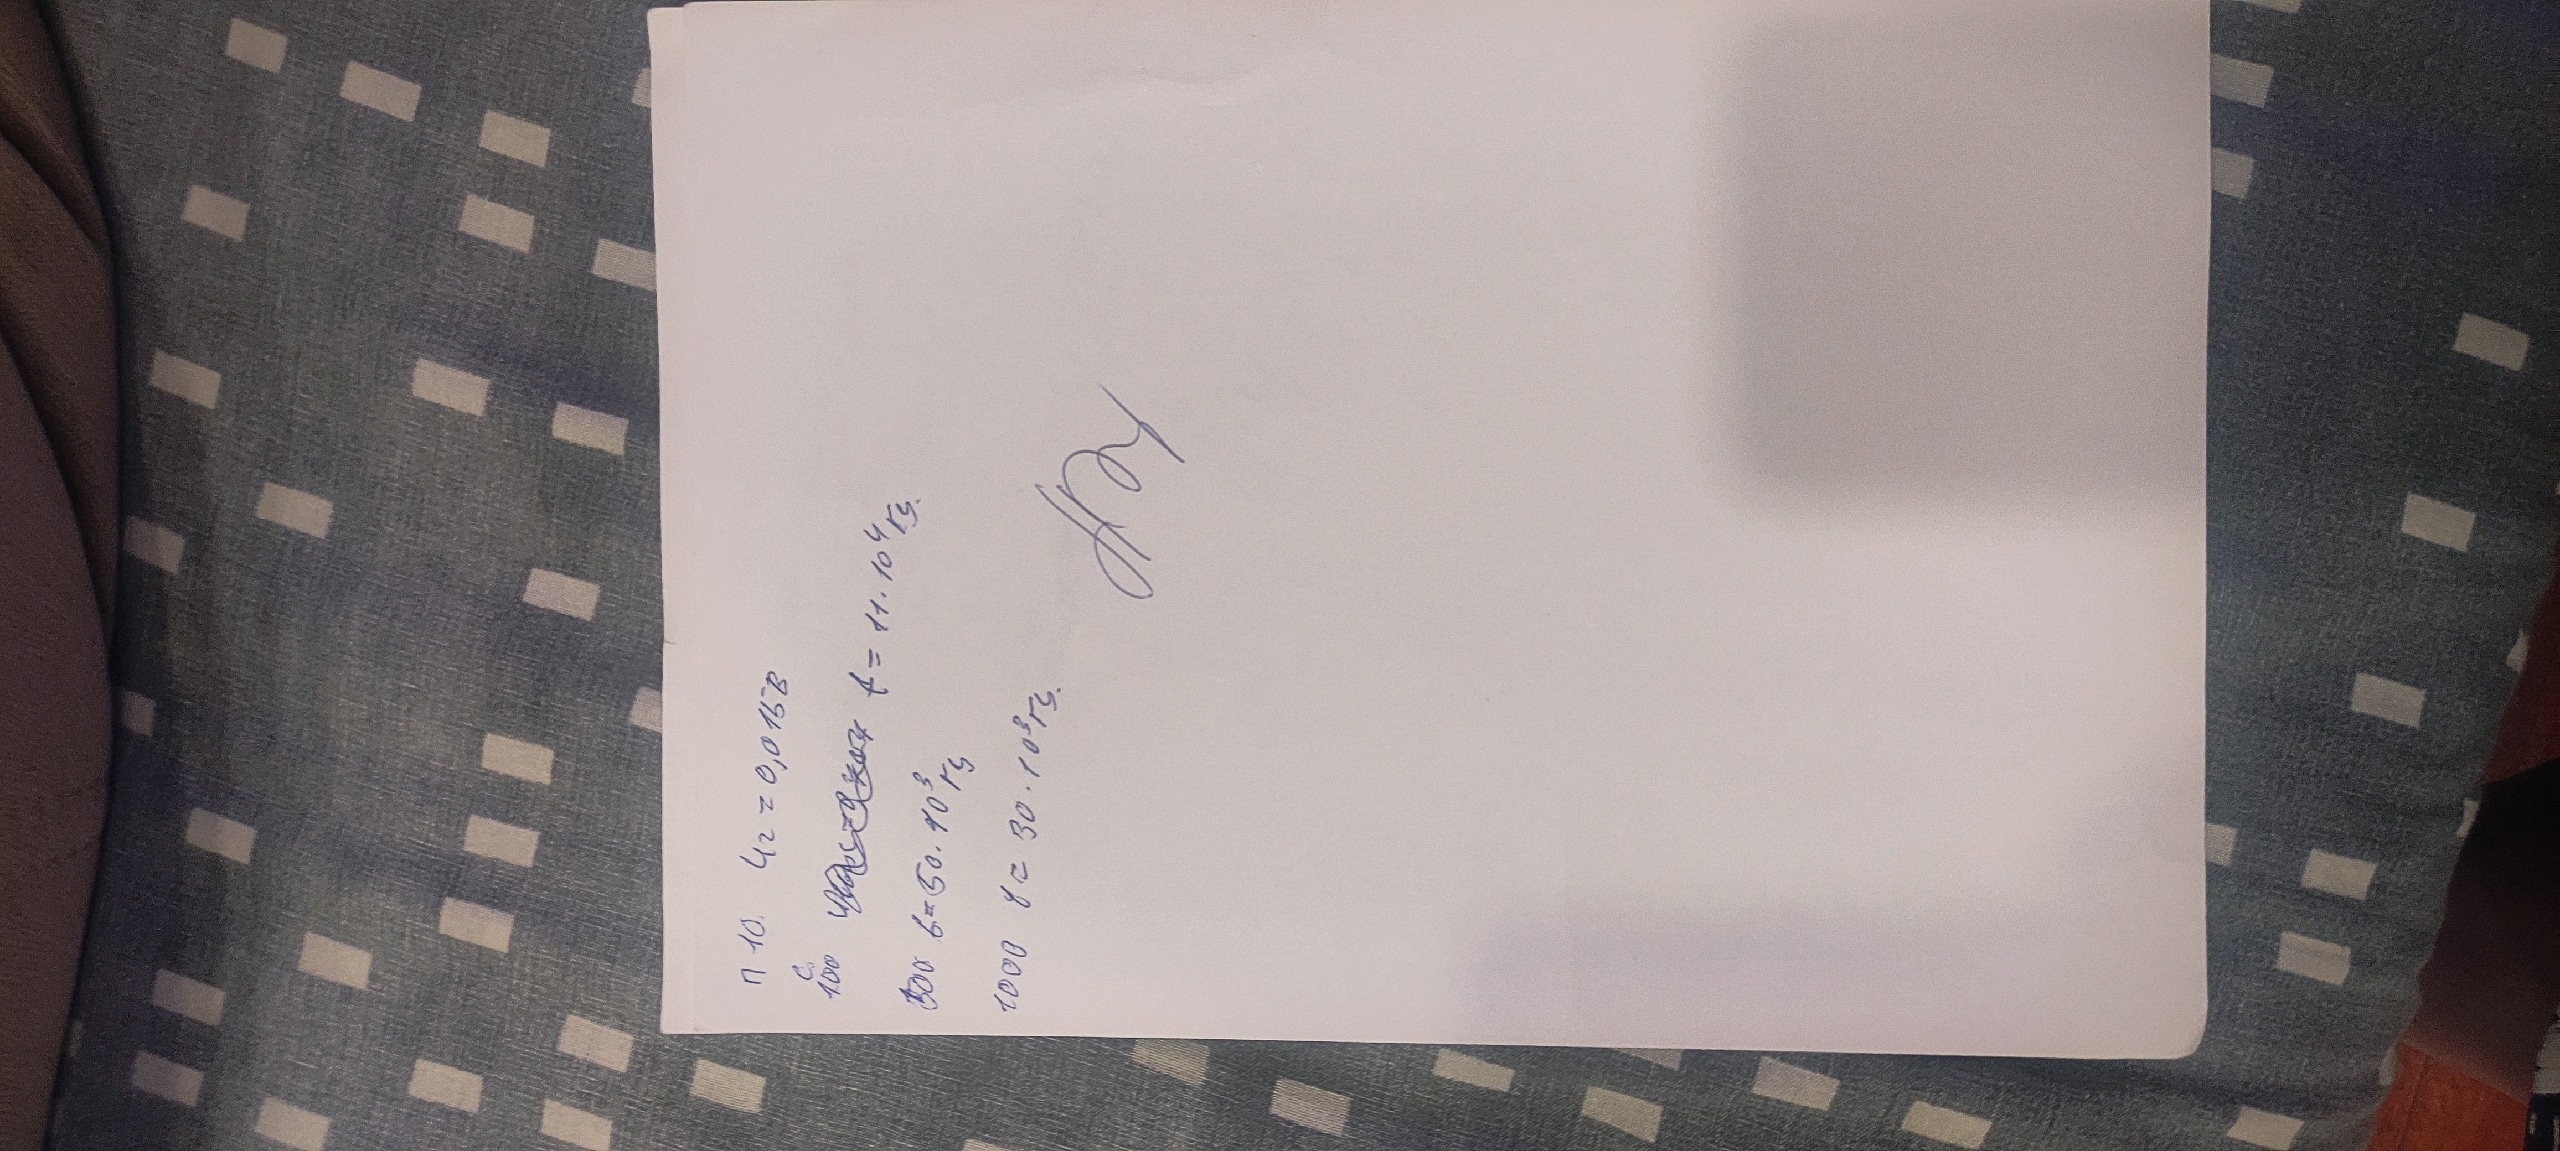 П 10. U2 = 0,015 В
C
100 f = 11·10⁴ Гц.
500 f = 50·10³ Гц
1000 f = 30·10³ Гц.